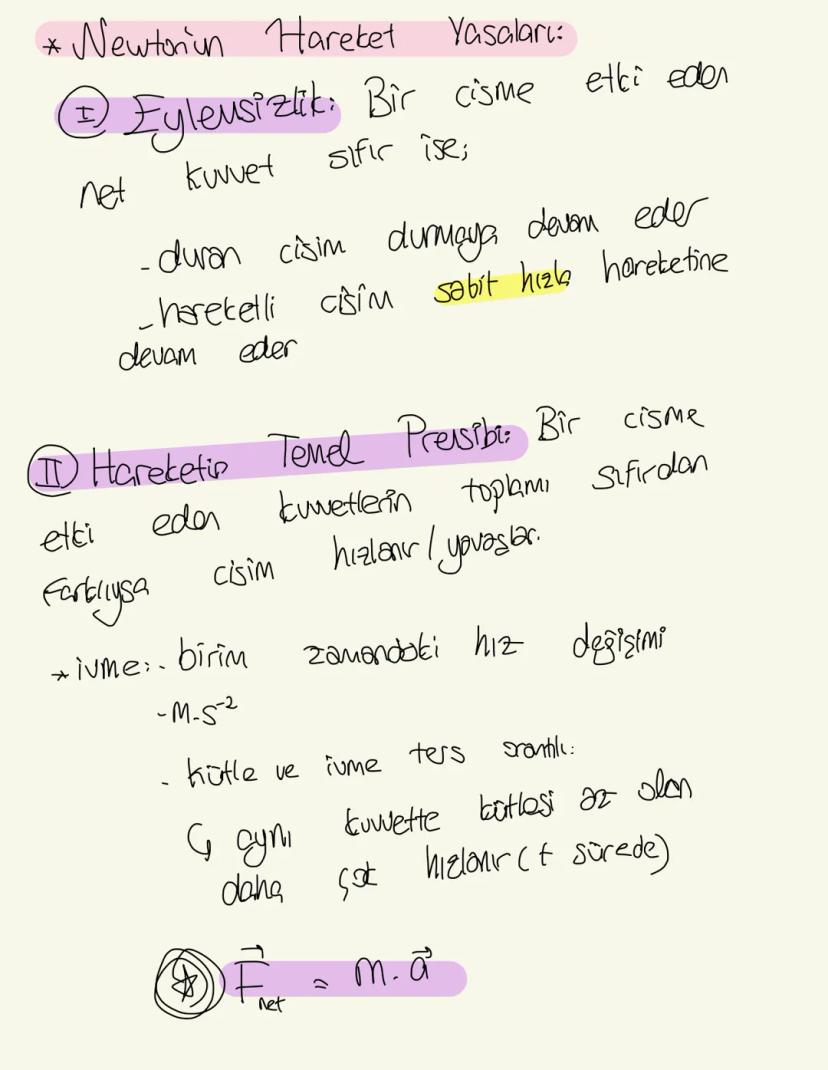 * Newton'un Hareket Yasaları:
I Eylemsizlik: Bir cisme etki eden
net kuvvet sıfır ise;
- duran cisim durmaya devam eder
- hareketli cisim sabit hızla hareketine
devam eder
II Hareketin Temel Prensibi: Bir cisme
etki eden kuvvetlerin toplamı sıfırdan
farklıysa cisim hızlanır / yavaşlar.
* ivme: - birim zamandaki hız değişimi
- m.s⁻²
- kütle ve ivme ters orantılı:
↳ aynı kuvvette kütlesi az olan
daha çok hızlanır (t sürede)
F⃗net = m.a⃗